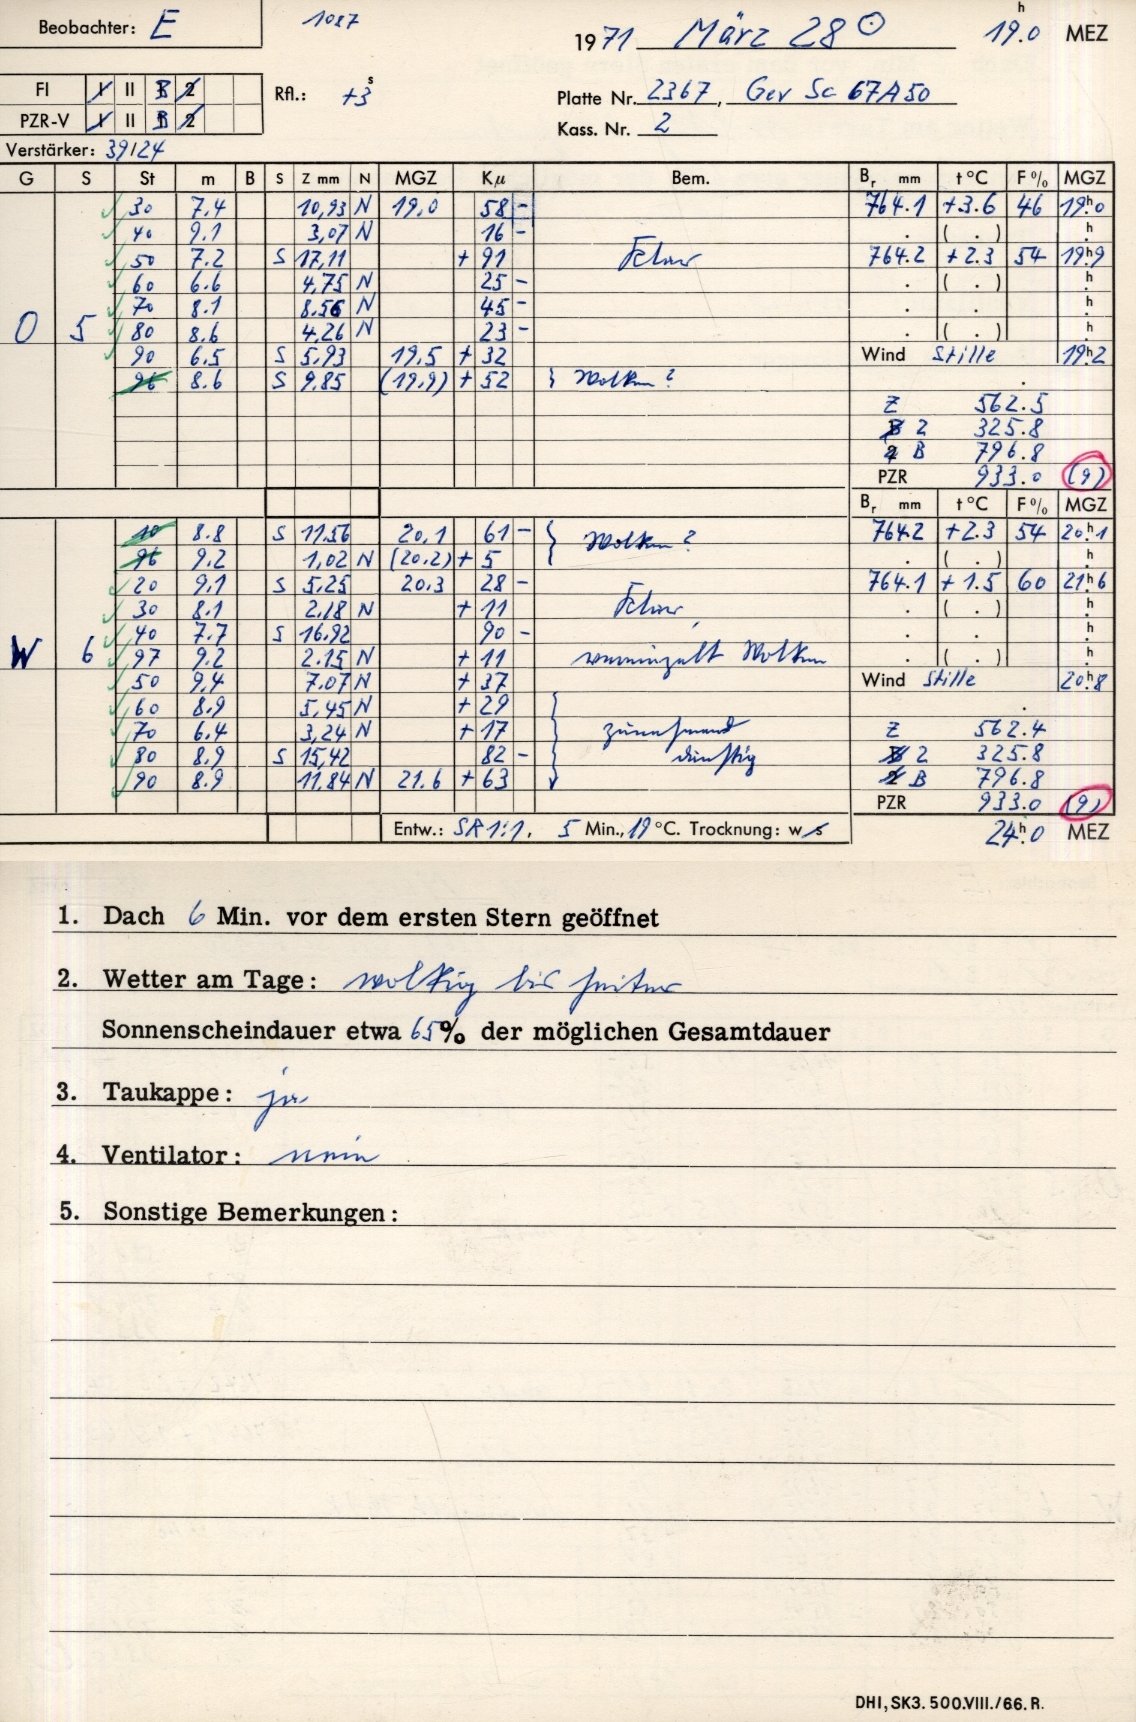 Beobachter: E 1087 1971 März 28 ⊙ 19.0 h MEZ
FI I II B 2 Rfl.: +3 s Platte Nr. 2367, Gev Sc 67A50
PZR-V I II B 2 Kass. Nr. 2
Verstärker: 39/24
G S St m B S Z mm N MGZ Kμ Bem. Br mm t °C F % MGZ
30 7.4 10,93 N 19,0 58 - 764.1 +3.6 46 19h0
40 9.1 3,07 N 16 - . ( . ) h
50 7.2 S 17,11 + 91 klar 764.2 +2.3 54 19h9
60 6.6 4,75 N 25 - . ( . ) h
70 8.1 8.56 N 45 - . . h
O 5 80 8.6 4,26 N 23 - . ( . ) h
90 6.5 S 5,93 19,5 + 32 Wind Stille 19h2
96 8.6 S 9,85 (19,9) + 52 } Wolken?
Z 562.5
2 325.8
B 796.8
PZR 933.0 (9)
Br mm t °C F % MGZ
10 8.8 S 11,56 20,1 61 - } Wolken? 764.2 +2.3 54 20h1
96 9.2 1,02 N (20.2) + 5 . ( . ) h
20 9,1 S 5,25 20,3 28 - 764.1 +1.5 60 21h6
30 8.1 2,18 N + 11 klar . ( . ) h
40 7.7 S 16,92 90 - . . h
W 6 97 9.2 2.15 N + 11 vereinzelt Wolken . ( . ) h
50 9,4 7.07 N + 37 Wind Stille 20h8
60 8.9 5,45 N + 29
70 6.4 3,24 N + 17 zunehmend Z 562.4
80 8.9 S 15,42 82 - dunstig 2 325.8
90 8.9 11,84 N 21.6 + 63 B 796.8
PZR 933.0 (9)
Entw.: SR 1:1, 5 Min., 19 °C. Trocknung: w s 24h0 MEZ
1. Dach 6 Min. vor dem ersten Stern geöffnet
2. Wetter am Tage: wolkig bis heiter
Sonnenscheindauer etwa 65% der möglichen Gesamtdauer
3. Taukappe: ja
4. Ventilator: nein
5. Sonstige Bemerkungen:
DHI, SK3. 500.VIII./66. R.